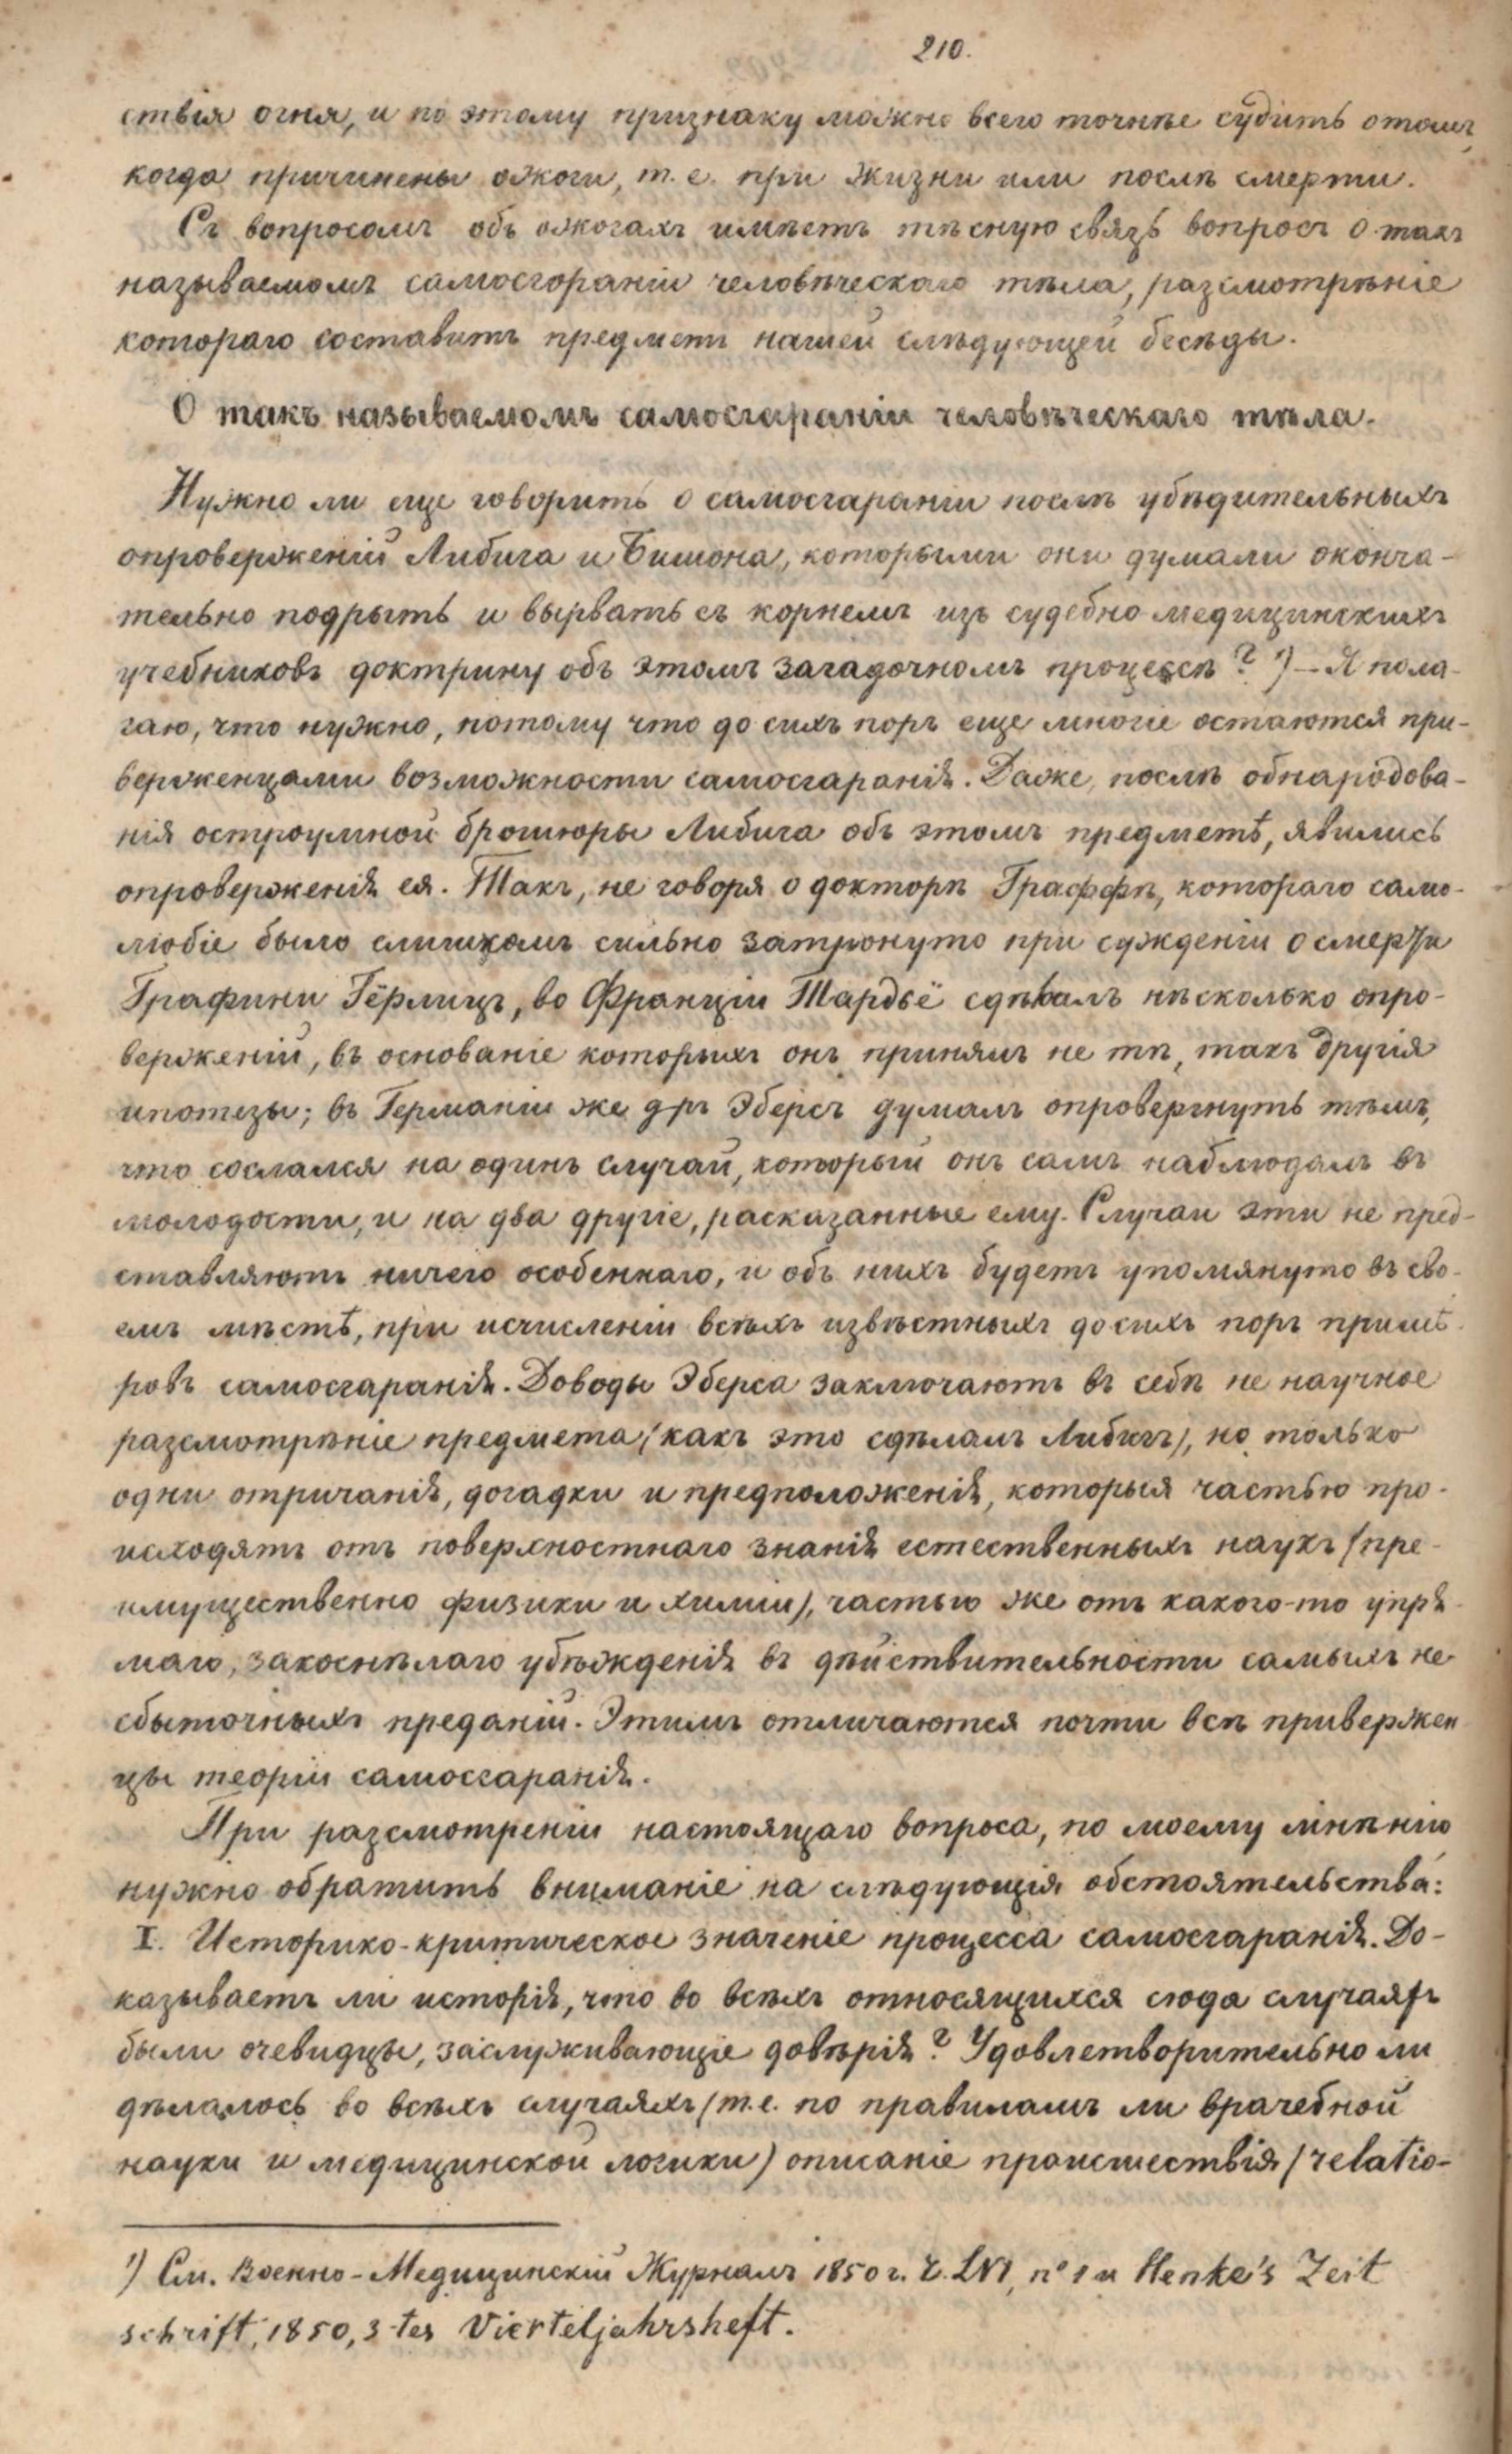 210.
ствія огня, и по этому признаку можно всего точнѣе судить о томъ,
когда причинены ожоги, т. е. при жизни или послѣ смерти.
Съ вопросомъ объ ожогахъ имѣетъ тѣсную связь вопросъ о такъ
называемомъ самосгораніи человѣческаго тѣла, разсмотрѣніе
котораго составитъ предметъ нашей слѣдующей бесѣды.
О такъ называемомъ самосгараніи человѣческаго тѣла.
Нужно ли еще говорить о самосгараніи послѣ убѣдительныхъ
опроверженій Либига и Бишона, которыми они думали оконча-
тельно подрыть и вырвать съ корнемъ изъ судебно медицинскихъ
учебниковъ доктрину объ этомъ загадочномъ процессѣ? ¹) — Я пола-
гаю, что нужно, потому что до сихъ поръ еще многіе остаются при-
верженцами возможности самосгаранія. Даже, послѣ обнародова-
нія остроумной брошюры Либига объ этомъ предметѣ, явились
опроверженія ея. Такъ, не говоря о докторѣ Граффѣ, котораго само-
любіе было слишкомъ сильно затронуто при сужденіи о смерти
Графини Гёрлицъ, во Франціи Тардьё сдѣлалъ нѣсколько опро-
верженій, въ основаніе которыхъ онъ принялъ не тѣ, такъ другія
ипотезы; въ Германіи же д-ръ Эберсъ думалъ опровергнуть тѣмъ,
что сослался на одинъ случай, который онъ самъ наблюдалъ въ
молодости, и на два другіе, расказанные ему. Случаи эти не пред-
ставляютъ ничего особеннаго, и объ нихъ будетъ упомянуто въ сво-
емъ мѣстѣ, при исчисленіи всѣхъ извѣстныхъ до сихъ поръ примѣ-
ровъ самосгаранія. Доводы Эберса заключаютъ въ себѣ не научное
разсмотрѣніе предмета (какъ это сдѣлалъ Либигъ), но только
одни отричанія, догадки и предположенія, которыя частью про-
исходятъ отъ поверхностнаго знанія естественныхъ наукъ (пре-
имущественно физики и химіи), частью же отъ какого-то упря-
маго, закоснѣлаго убѣжденія въ дѣйствительности самыхъ не-
сбыточныхъ преданій. Этимъ отличаются почти всѣ привержен-
цы теоріи самосгаранія.
При разсмотреніи настоящаго вопроса, по моему мнѣнію
нужно обратить вниманіе на слѣдующія обстоятельства:
I. Историко-критическое значеніе процесса самосгаранія. До-
казываетъ ли исторія, что во всѣхъ относящихся сюда случаяхъ
были очевидцы, заслуживающіе довѣрія? Удовлетворительно ли
дѣлалось во всѣхъ случаяхъ (т. е. по правиламъ ли врачебной
науки и медицинской логики) описаніе происшествія (relatio-
¹) См. Военно-Медицинскій Журналъ 1850 г. Ч. LVI, nº 1 и Henke's Zeit
schrift, 1850, 3-tes Vierteljahrsheft.